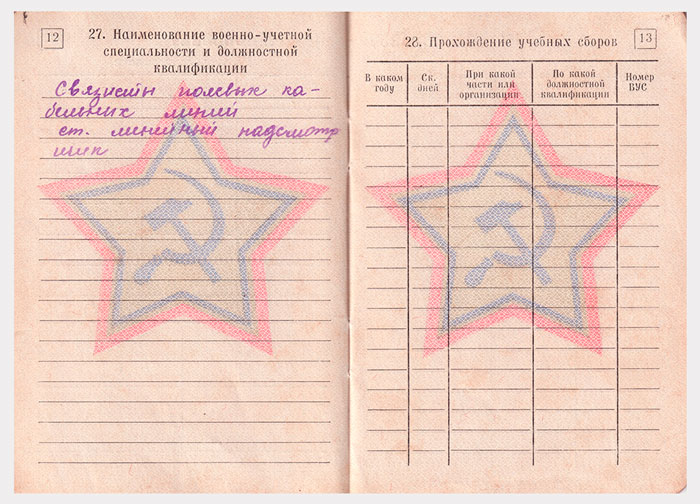 12
27. Наименование военно-учетной
специальности и должностной
квалификации
Связисты полевых ка-
бельных линий
ст. линейный надсмотр
щик
28. Прохождение учебных сборов
13
В каком году
Ск. дней
При какой части или организации
По какой должностной квалификации
Номер ВУС